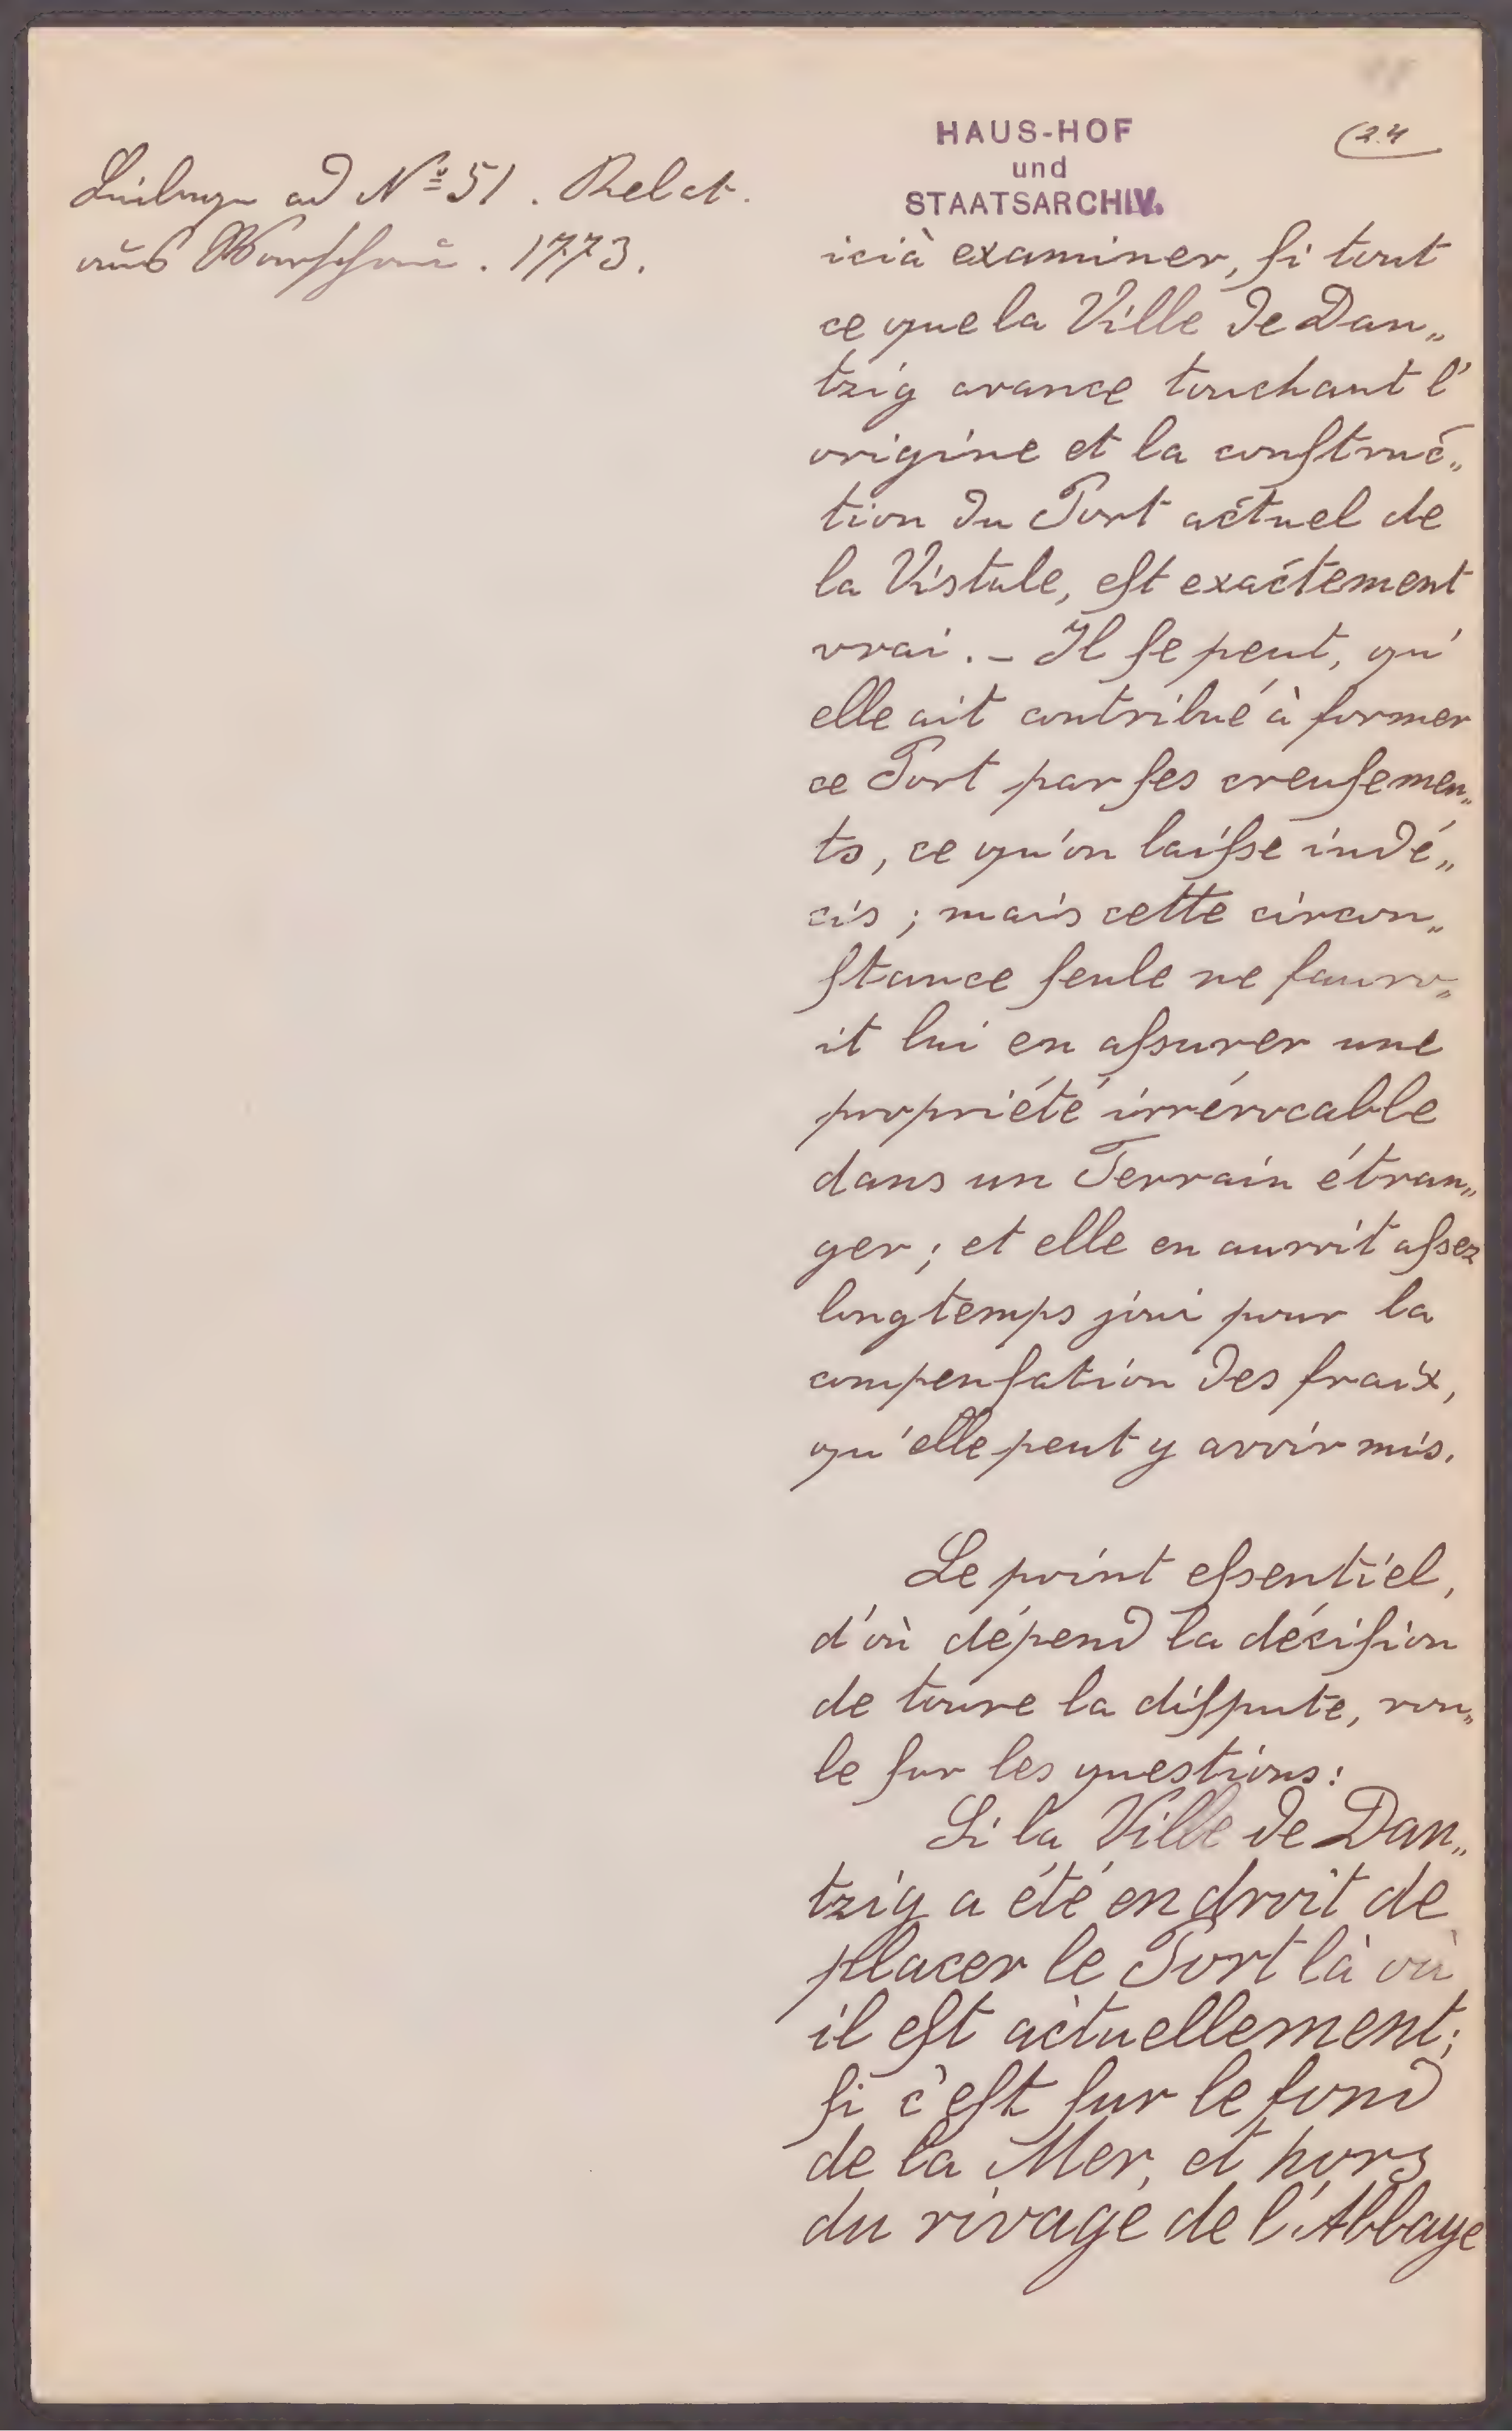 HAUS-HOF
und
STAATSARCHIV.
(24
Beilage ad Nº 51. Relat.
aus Warschau. 1773.
icià examiner, ſi tout
ce que la Ville de Dan„
tzig avance touchant l'
origine et la conſtruc„
tion du Port actuel de
la Vistule, eſt exactement
vrai. – Il ſe peut, qu'
elle ait contribué à former
ce Port par ſes creuſemen„
ts, ce qu'on laiſse indé„
cis; mais cette circon„
ſtance ſeule ne ſauro„
it lui en aſsurer une
propriété irrévocable
dans un Terrain étran„
ger; et elle en auroit aſsez
longtemps joui pour la
compenſation des fraix,
qu'elle peut y avoir mis.
Le point eſsentiel,
d'où dépend la déciſion
de toure la diſpute, rou„
le ſur les questions:
Si la Ville de Dan„
tzig a été en droit de
placer le Port là où
il eſt actuellement;
ſi c'eſt ſur le fond
de la Mer, et hors
du rivage de l'Abbaye